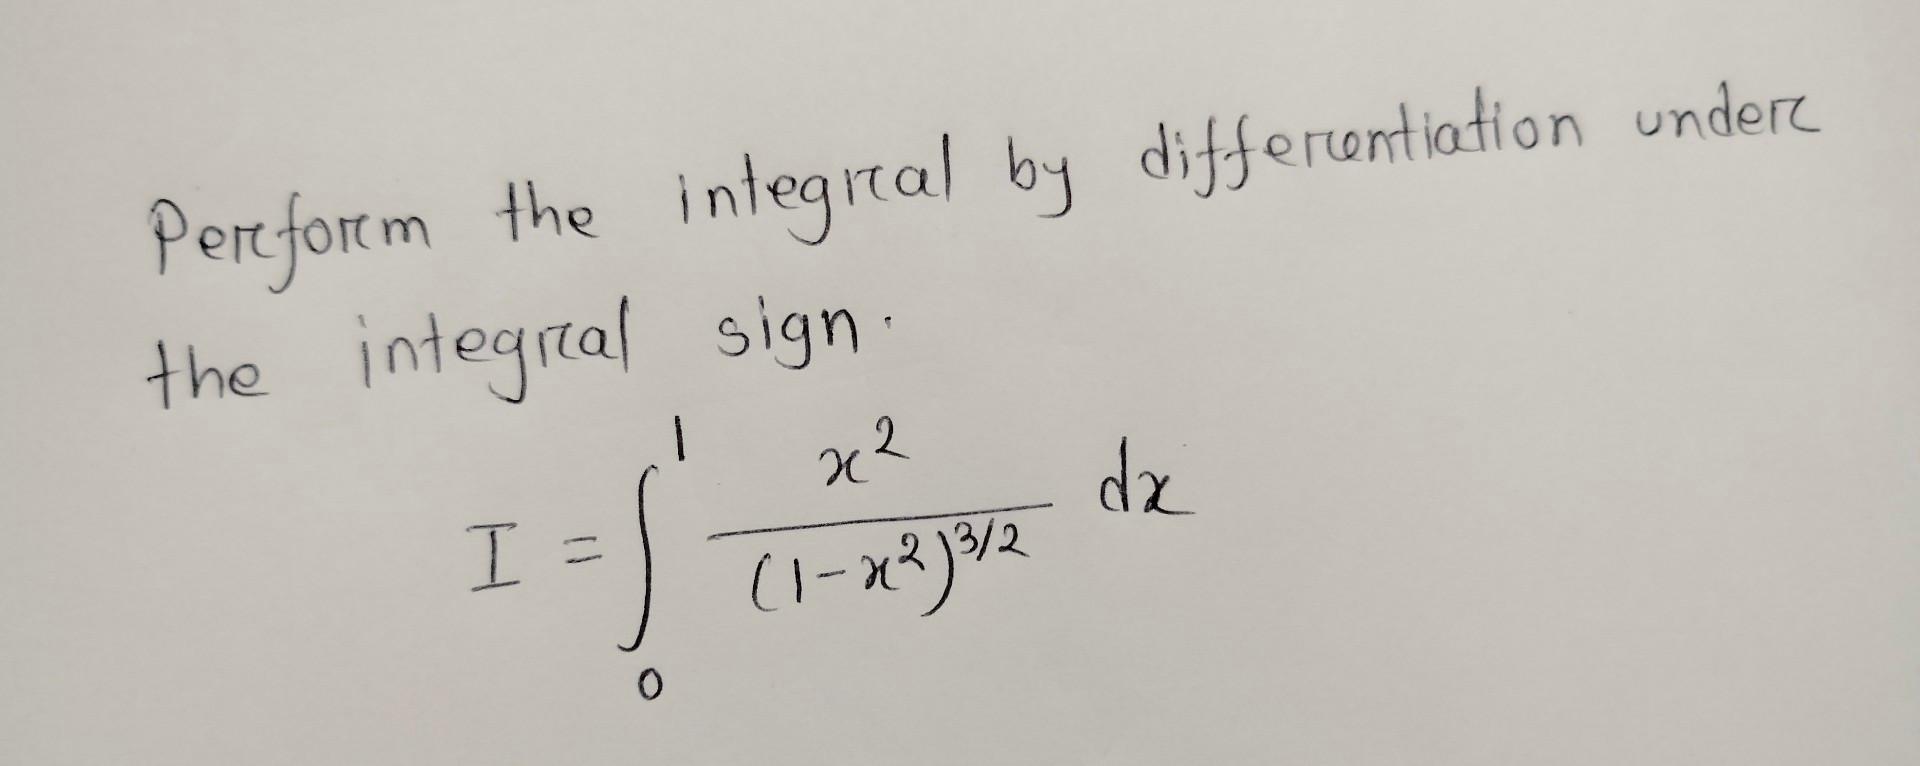 Perform the integral by differentiation under
the integral sign.
I = ∫₀¹ x²/(1-x²)^3/2 dx